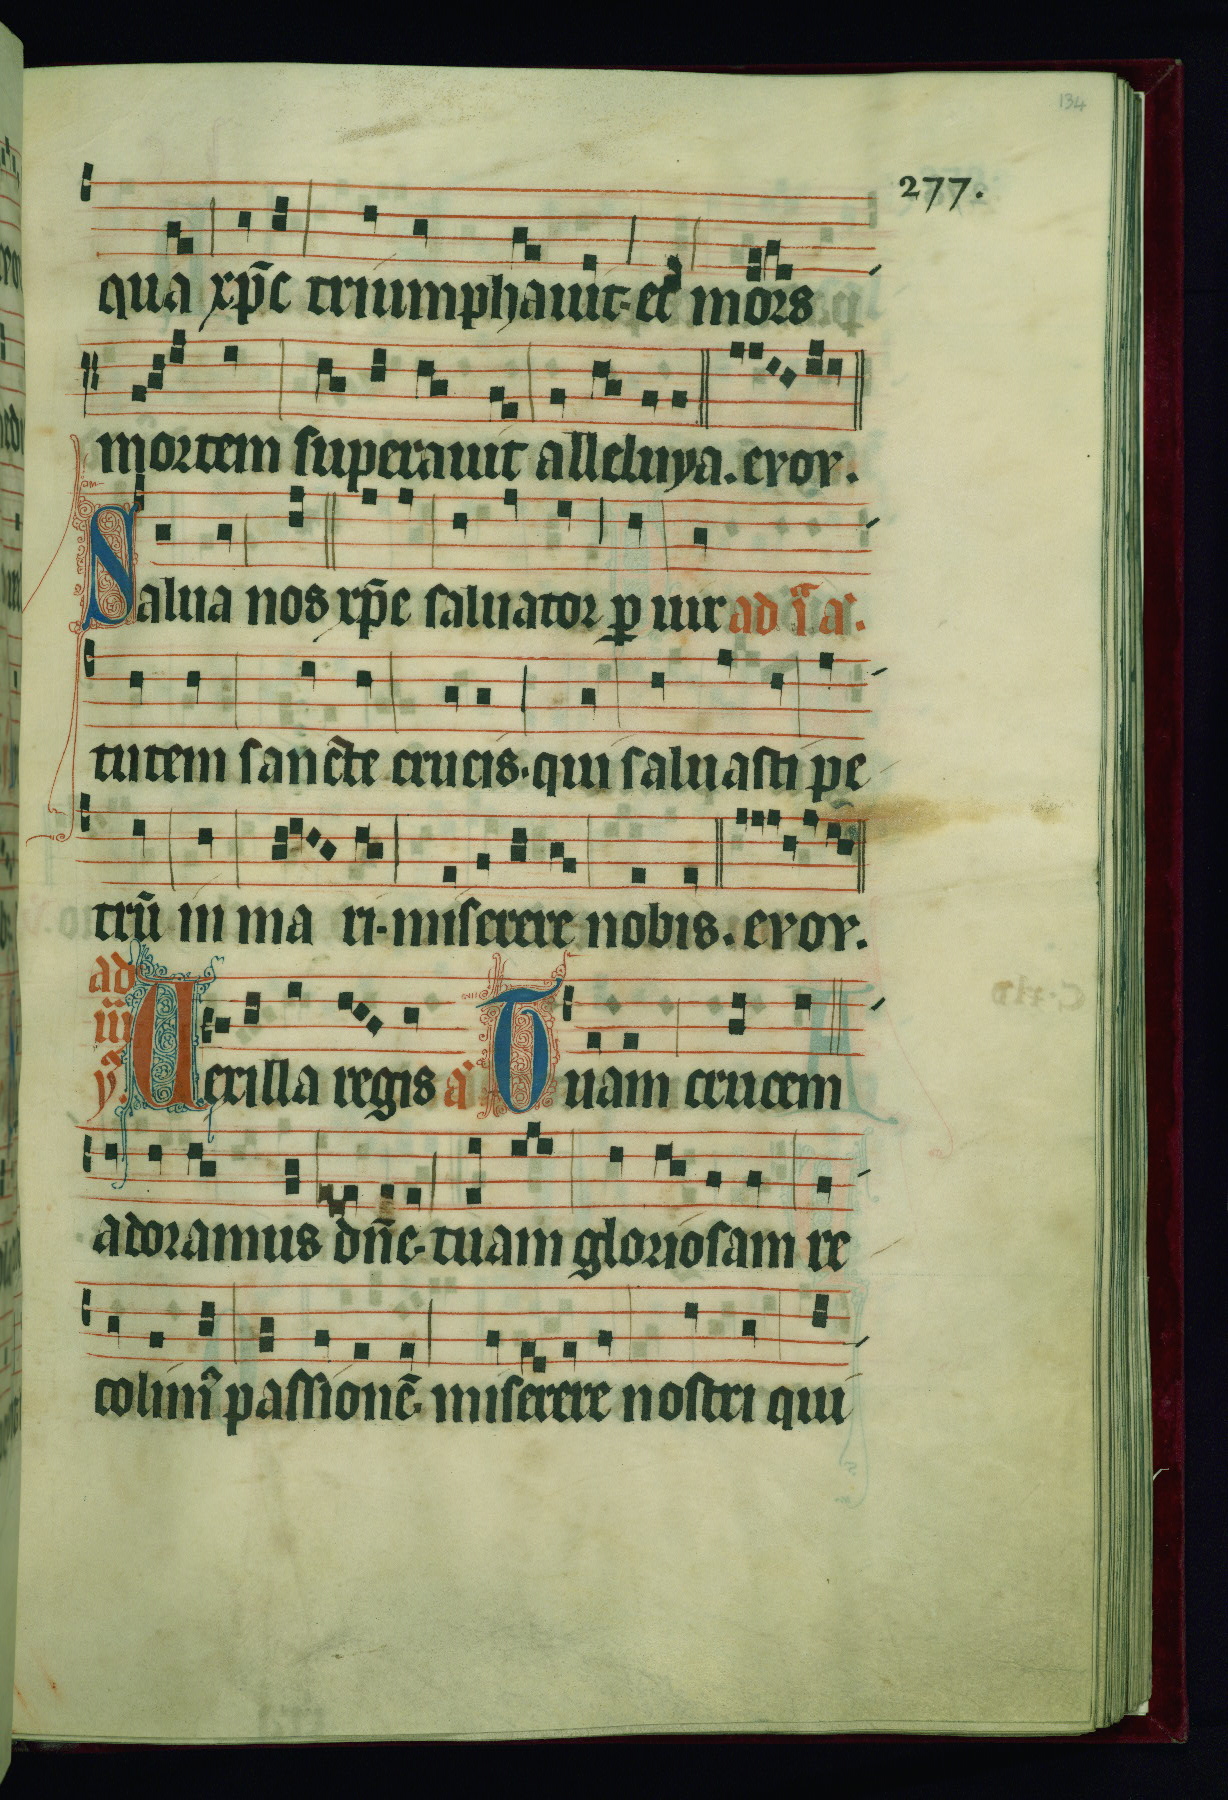 134
277.
qua xp̄c triumphauit. et mors
mortem superauit alleluya. evov.
Salua nos xp̄e saluator p uir ad i a.
tutem sancte crucis. qui saluasti pe
trū in ma ri. miserere nobis. evov.
ad iii y. Uexilla regis a Tuam crucem
adoramus dn̄e. tuam gloriosam re
colim᷒ passionē. miserere nostri qui